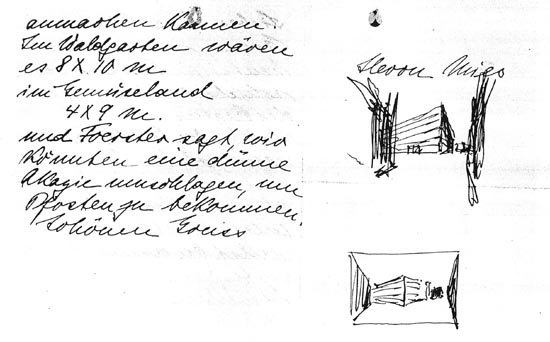 anmachen kannen.
Im Waldgarten wären
es 8 X 10 m
im Gemüseland
4 X 9 m.
und Foerster sagt wir
könnten eine dünne
Akazie umschlagen, um
Pfosten zu bekommen.
Schönen Gruss
Herrn Mies